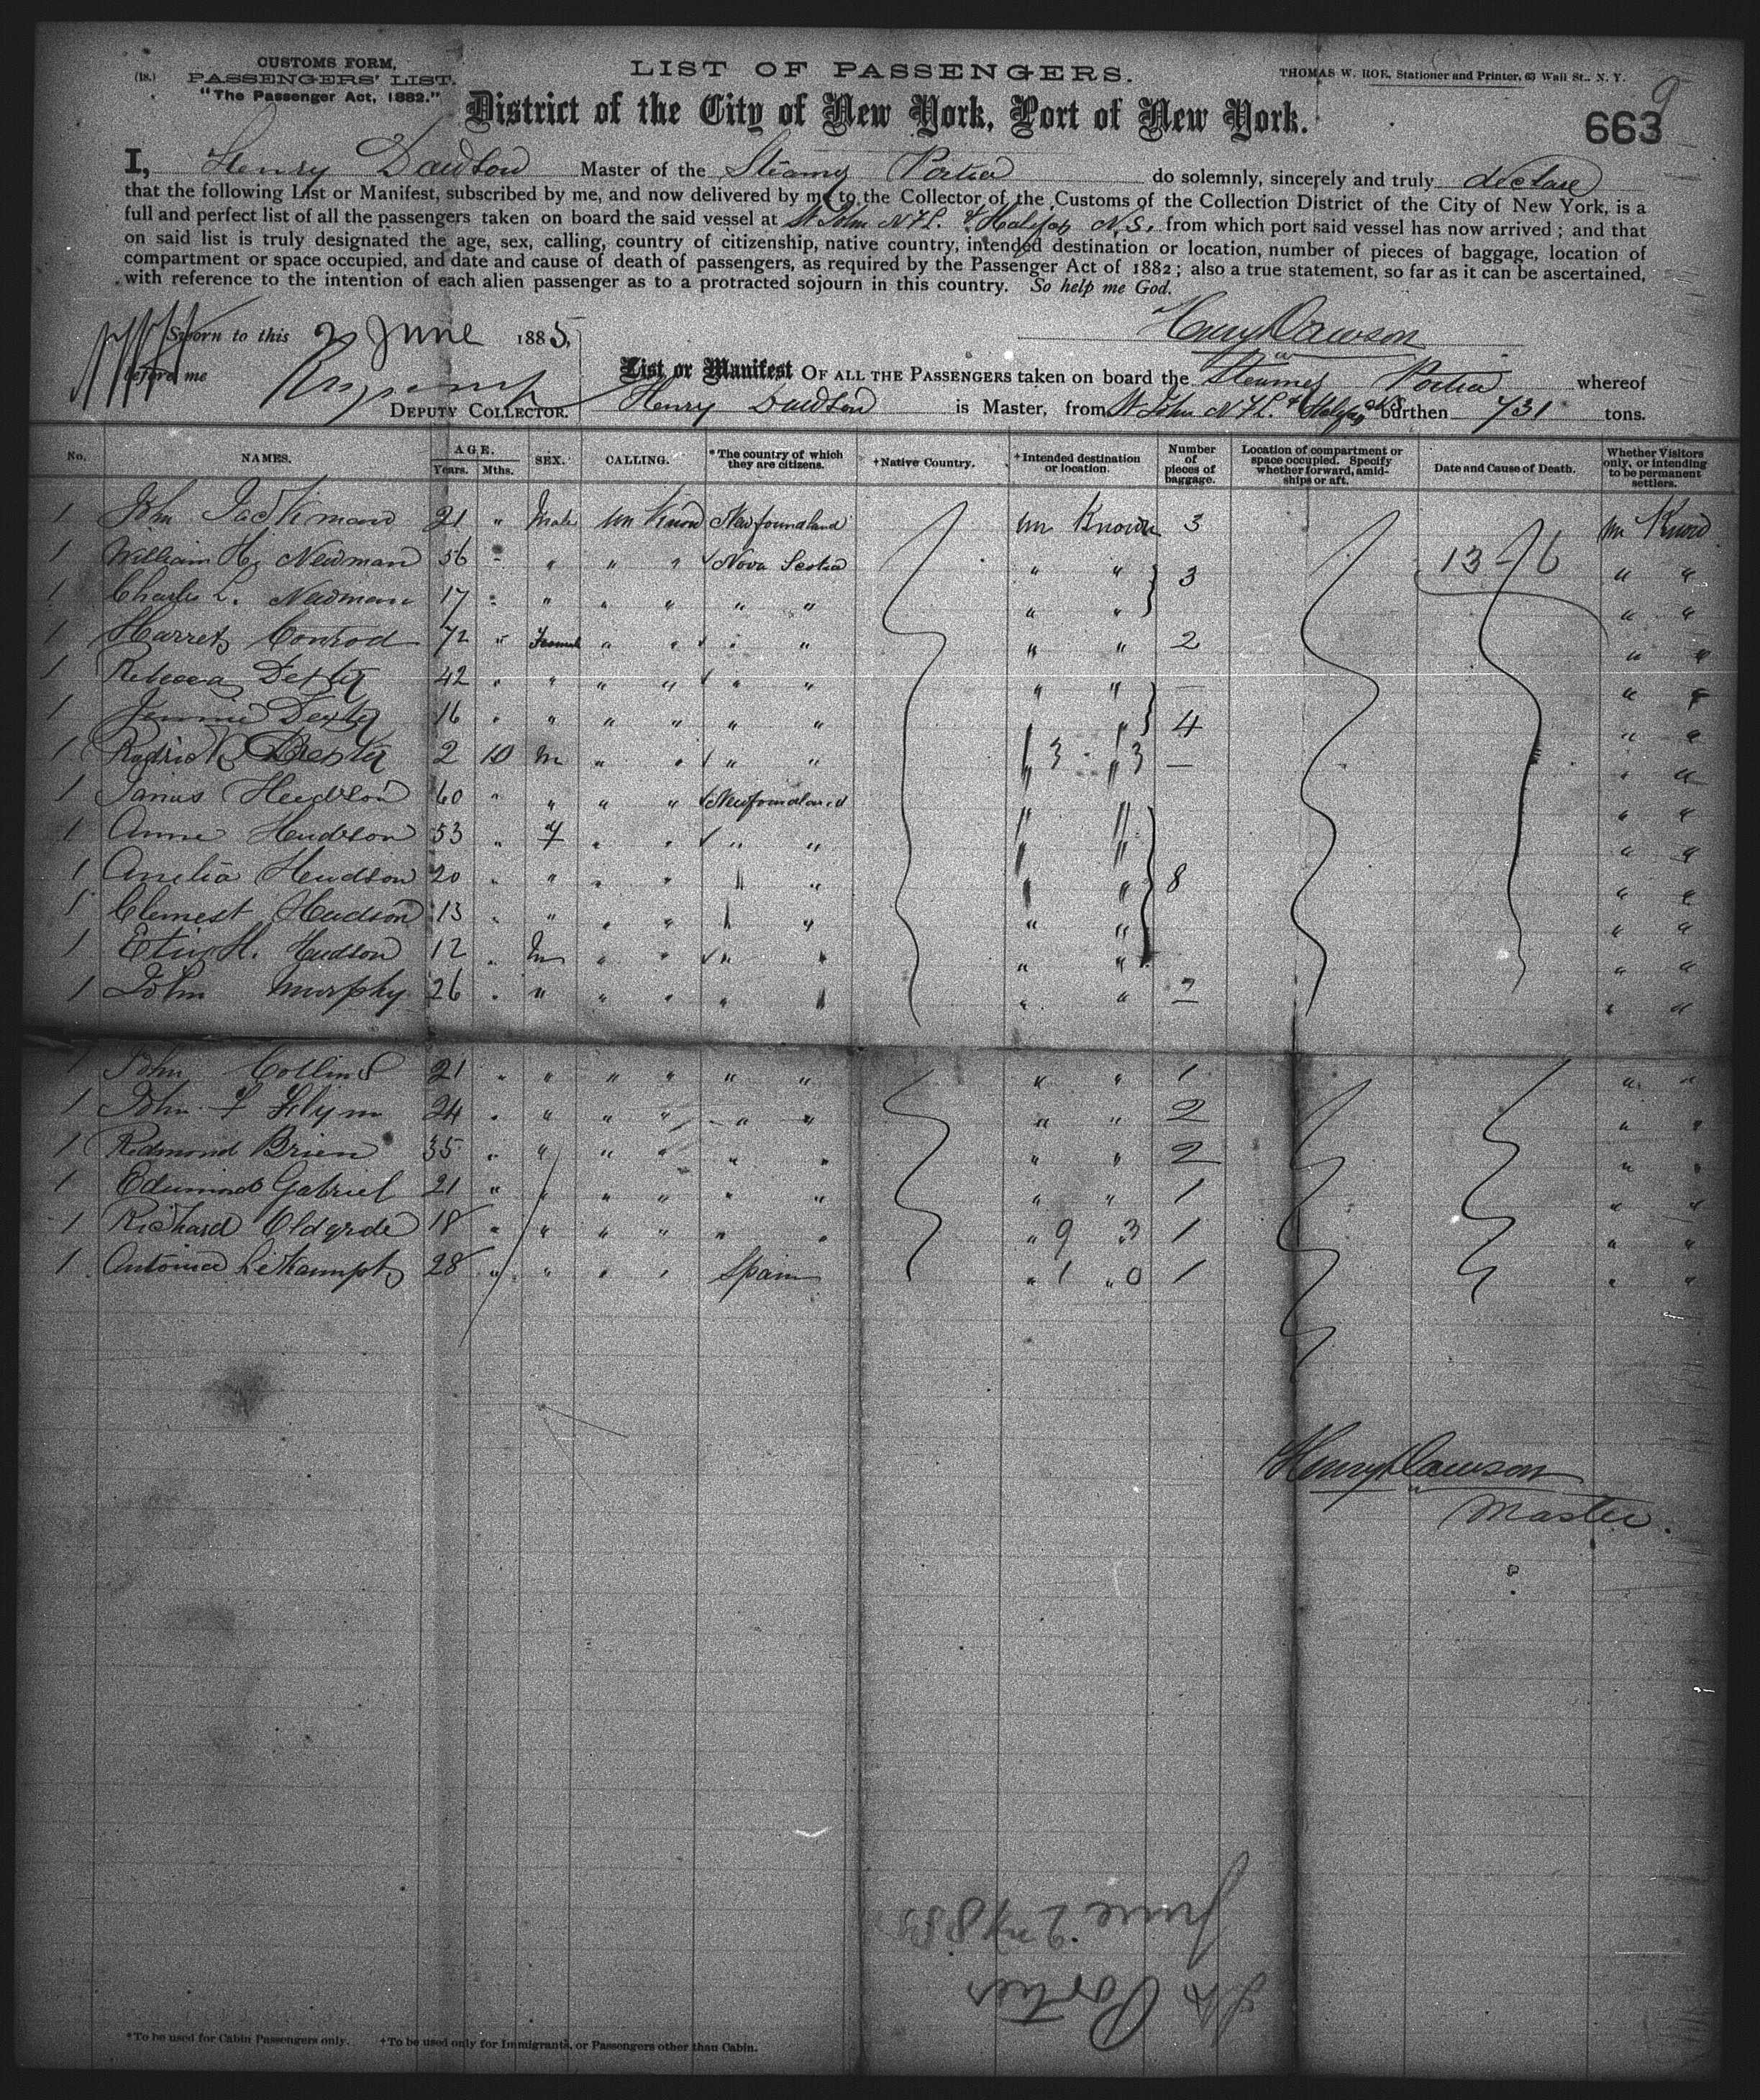 (18.)
CUSTOMS FORM,
PASSENGERS' LIST.
"The Passenger Act, 1882."
LIST OF PASSENGERS.
THOMAS W. ROE, Stationer and Printer, 63 Wall St., N. Y.
9
District of the City of New York, Port of New York.
663
I, Henry Dawson Master of the Steamer Portia do solemnly, sincerely and truly declare
that the following List or Manifest, subscribed by me, and now delivered by me to the Collector of the Customs of the Collection District of the City of New York, is a
full and perfect list of all the passengers taken on board the said vessel at St John N.F.L. & Halifax N.S. from which port said vessel has now arrived; and that
on said list is truly designated the age, sex, calling, country of citizenship, native country, intended destination or location, number of pieces of baggage, location of
compartment or space occupied, and date and cause of death of passengers, as required by the Passenger Act of 1882; also a true statement, so far as it can be ascertained,
with reference to the intention of each alien passenger as to a protracted sojourn in this country. So help me God.
Sworn to this 2 June 1885,
Henry Dawson
before me
DEPUTY COLLECTOR.
List or Manifest OF ALL THE PASSENGERS taken on board the Steamer Portia whereof
Henry Dawson is Master, from St John N.F.L. & Halifax N.S. burthen 731 tons.
No. NAMES. AGE. Years. Mths. SEX. CALLING. *The country of which they are citizens. †Native Country. †Intended destination or location. Number of pieces of baggage. Location of compartment or space occupied. Specify whether forward, amidships or aft. Date and Cause of Death. Whether Visitors only, or intending to be permanent settlers.
1 John 21 " Male un Know Newfoundland un Known 3 un Know
1 William H. Newman 56 " " " " Nova Scotia " " 3 13 - 6 " "
1 Charles L. Newman 17 " " " " " " " " " "
1 Harret Conrod 72 " Femal " " " " " " 2 " "
1 Rebecca Dexter 42 " " " " " " " " — " "
1 Jennie Dexter 16 " " " " " " " " 4 " "
1 Dexter 2 10 M " " " " " 3 - " 3 — " "
1 Hudson 60 " " " " Newfoundland " " " "
1 Anne Hudson 53 " F " " " " " " " "
1 Amelia Hudson 20 " " " " " " " " 8 " "
1 Clemest Hudson 13 " " " " " " " " " "
1 H. Hudson 12 " M " " " " " " " "
1 John Murphy 26 " " " " " " " " 2 " "
1 John Collins 21 " " " " " " " " 1 " "
1 John F Flynn 24 " " " " " " " " 2 " "
1 Redmond Brien 35 " " " " " " " " 2 " "
1 Edumond Gabriel 21 " " " " " " " " 1 " "
1 Richard 18 " " " " " " " 9 " 3 1 " "
1 28 " " " " Spain " 1 " 0 1 " "
Henry Dawson
Master.
June 2nd 1885
Portia
*To be used for Cabin Passengers only. †To be used only for Immigrants, or Passengers other than Cabin.